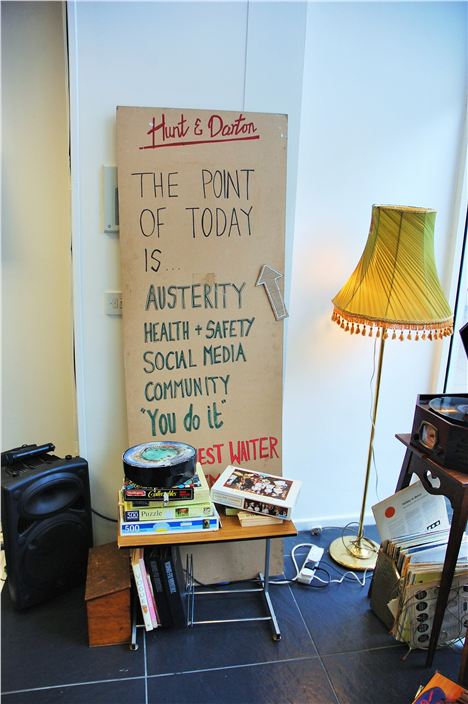 Hunt & Darton
THE POINT
OF TODAY
IS...
AUSTERITY
HEALTH + SAFETY
SOCIAL MEDIA
COMMUNITY
"You do it"
WAITER
Puzzle
500